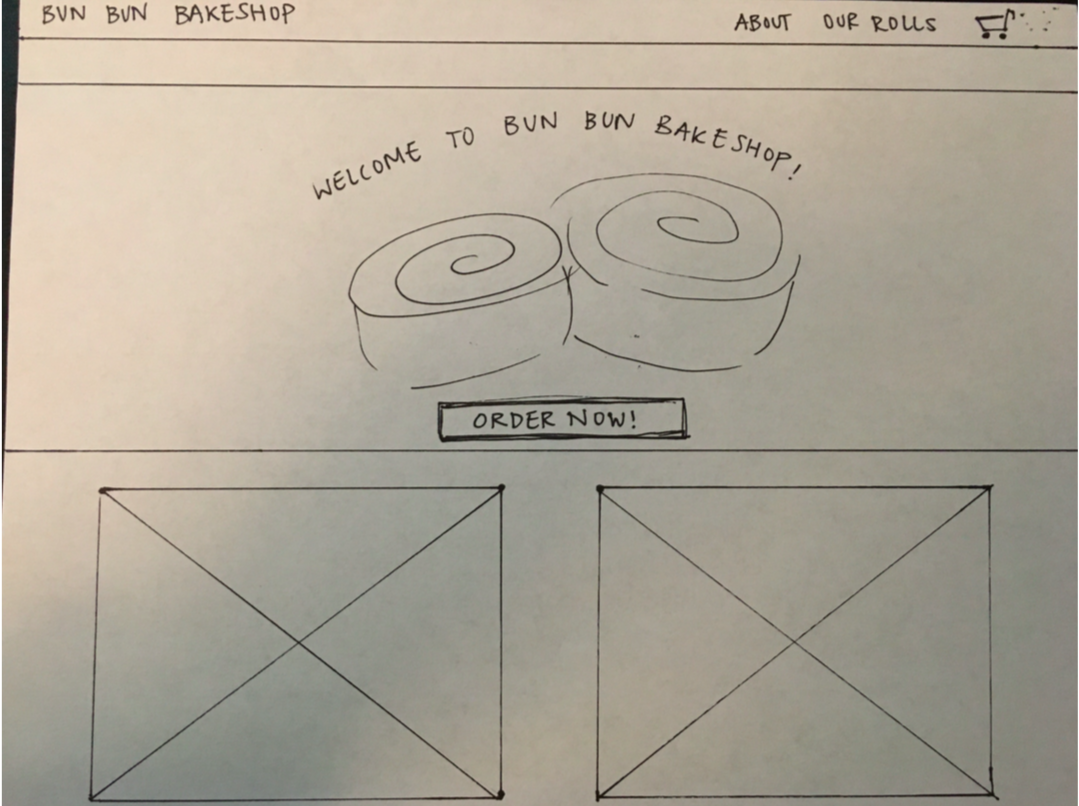 BUN BUN BAKESHOP
ABOUT OUR ROLLS
WELCOME TO BUN BUN BAKESHOP!
ORDER NOW!